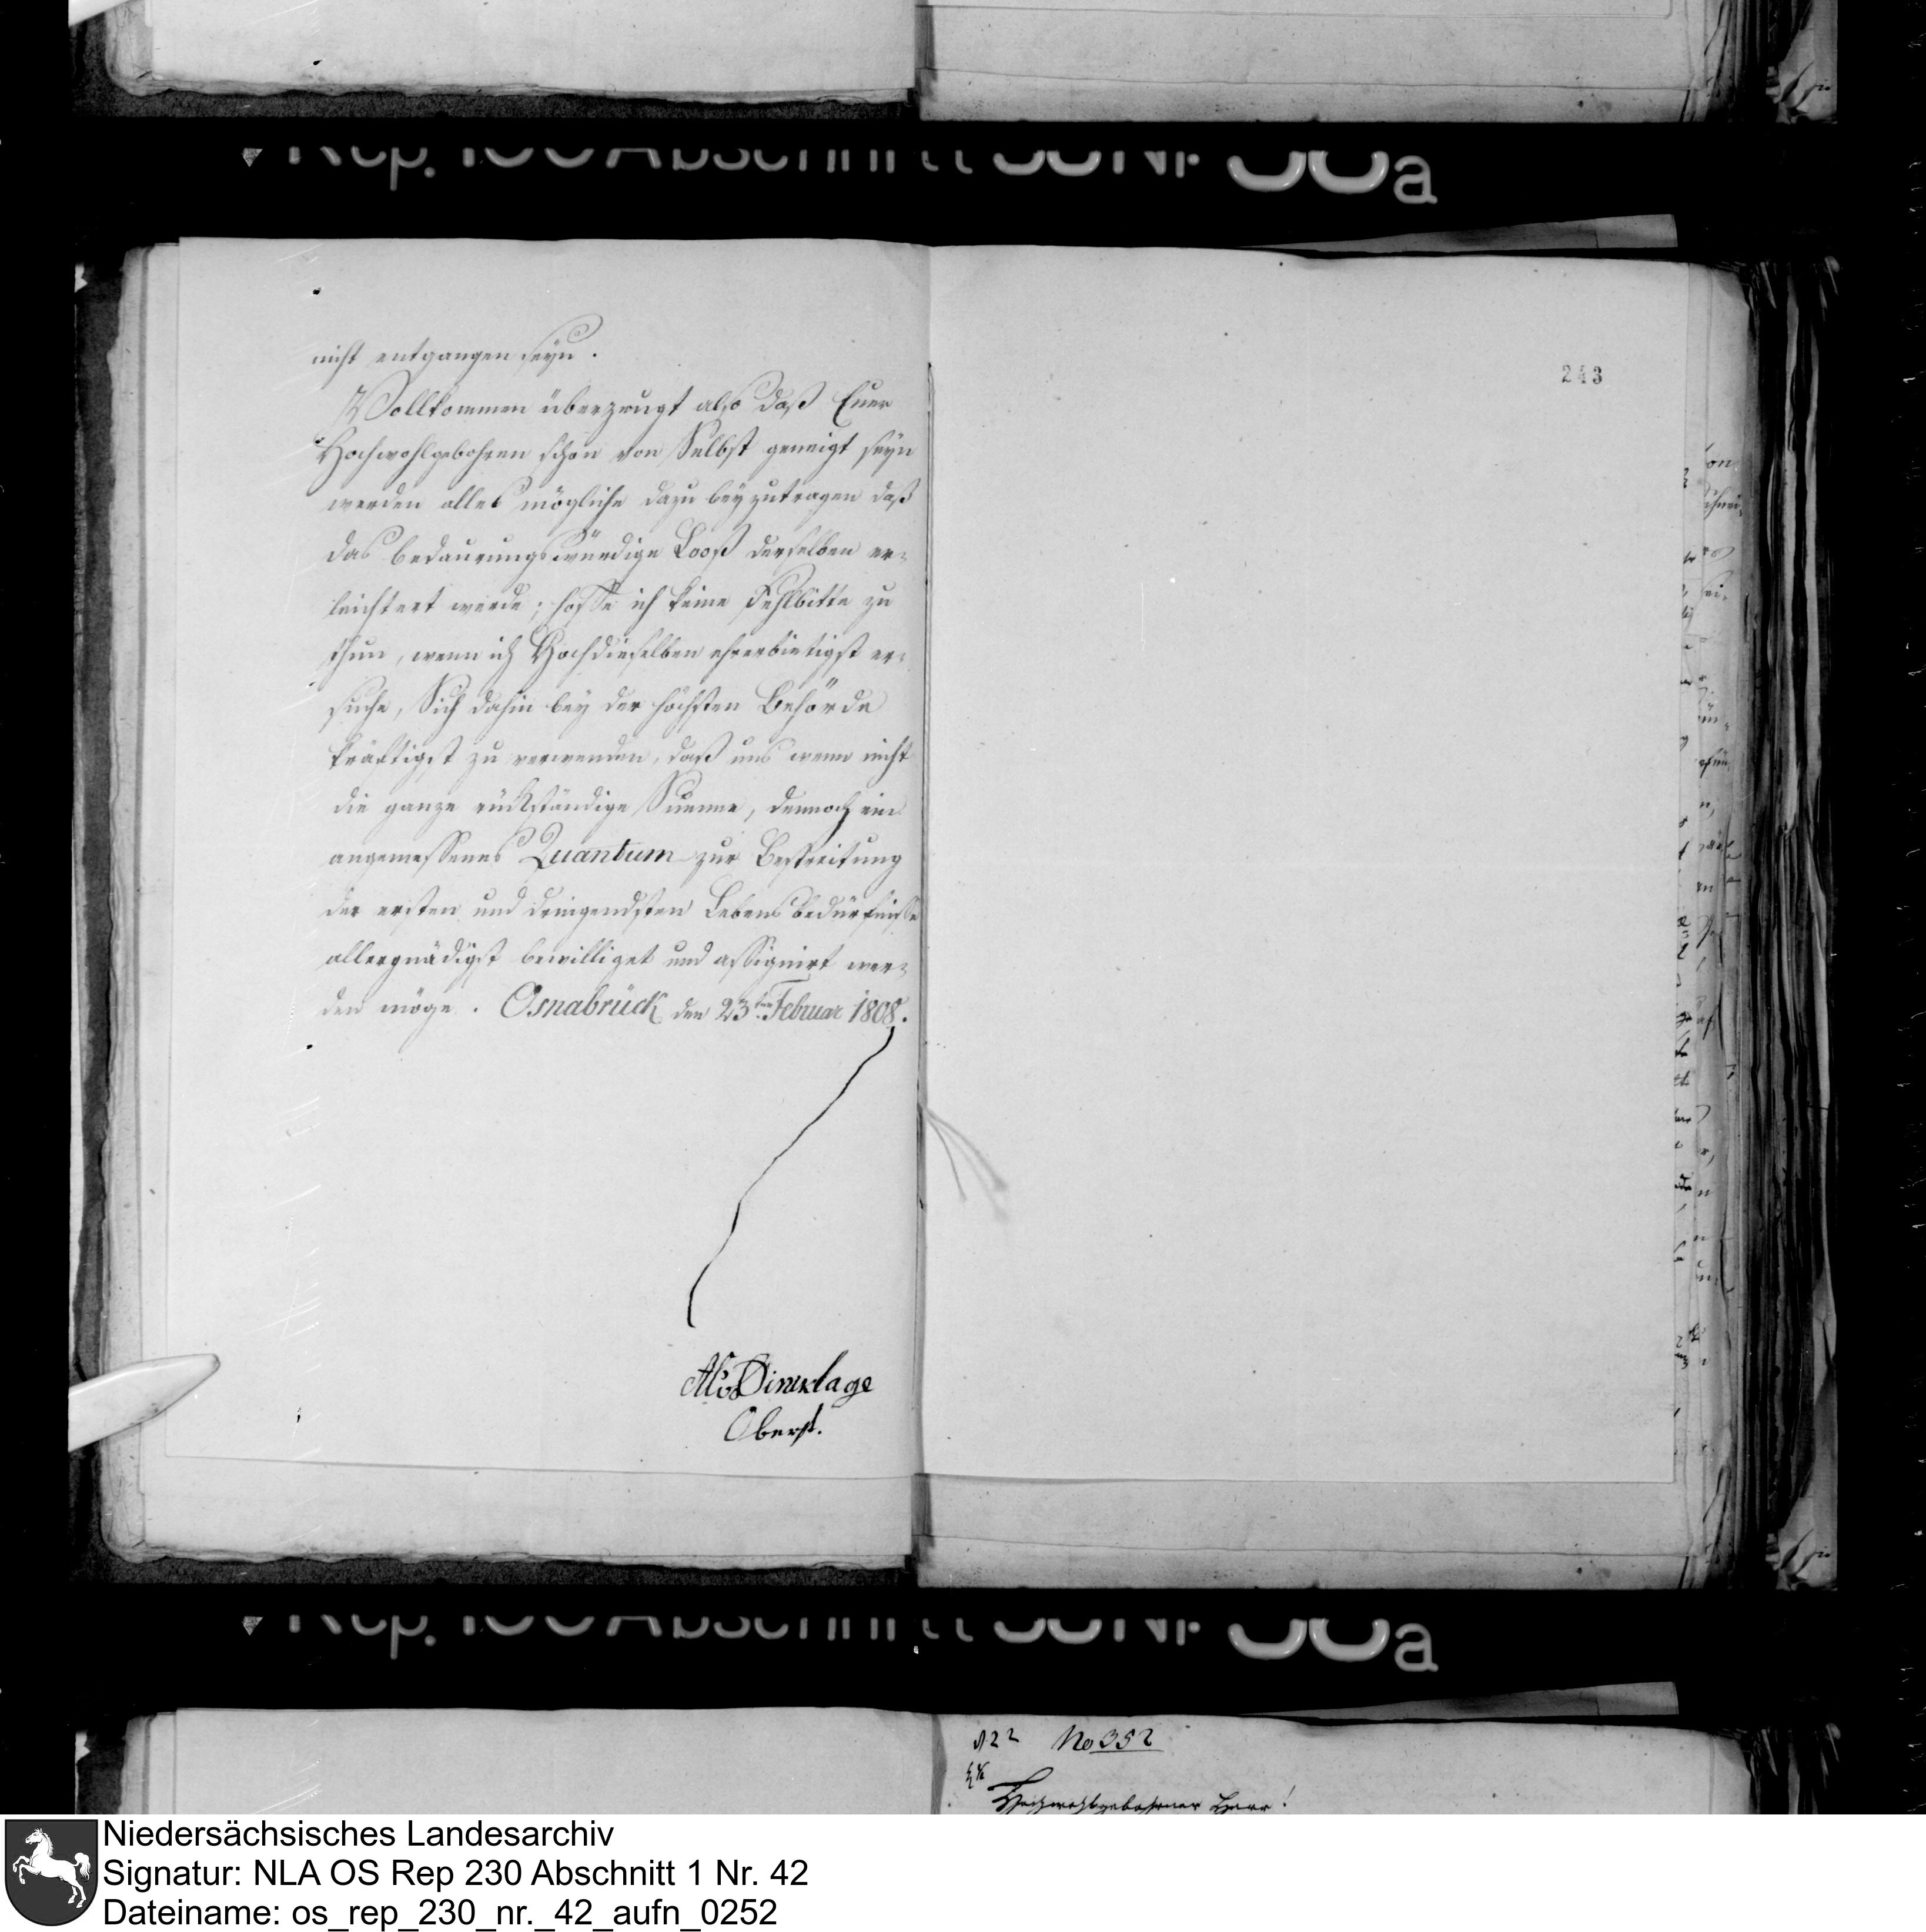 nicht entgangen seyn.
Vollkommen überzeugt also daß Euer
Hochwohlgebohren schon von Selbst geneigt seyn
werden alles mögliche dazu beyzutragen daß
das bedauerungswürdige Looß derselben er-
leichtert werde; hoffe ich keine Fehlbitte zu
thun, wenn ich Hochdieselben ehrerbietigst er-
suche, Sich dahin bey der höchsten Behörde
kräftigst zu verwenden, daß uns wenn nicht
die ganze rückständige Summe, dennoch ein
angemessenes Quantum zur Bestreitung
der ersten und dringendsten Lebensbedürfnisse
allergnädigst bewilliget und assignirt wer-
den möge. Osnabrück den 23ten Februar 1808.
Dincklage
Oberst.
243
No 352
Hochwohlgebohrner Herr!
Niedersächsisches Landesarchiv
Signatur: NLA OS Rep 230 Abschnitt 1 Nr. 42
Dateiname: os_rep_230_nr._42_aufn_0252